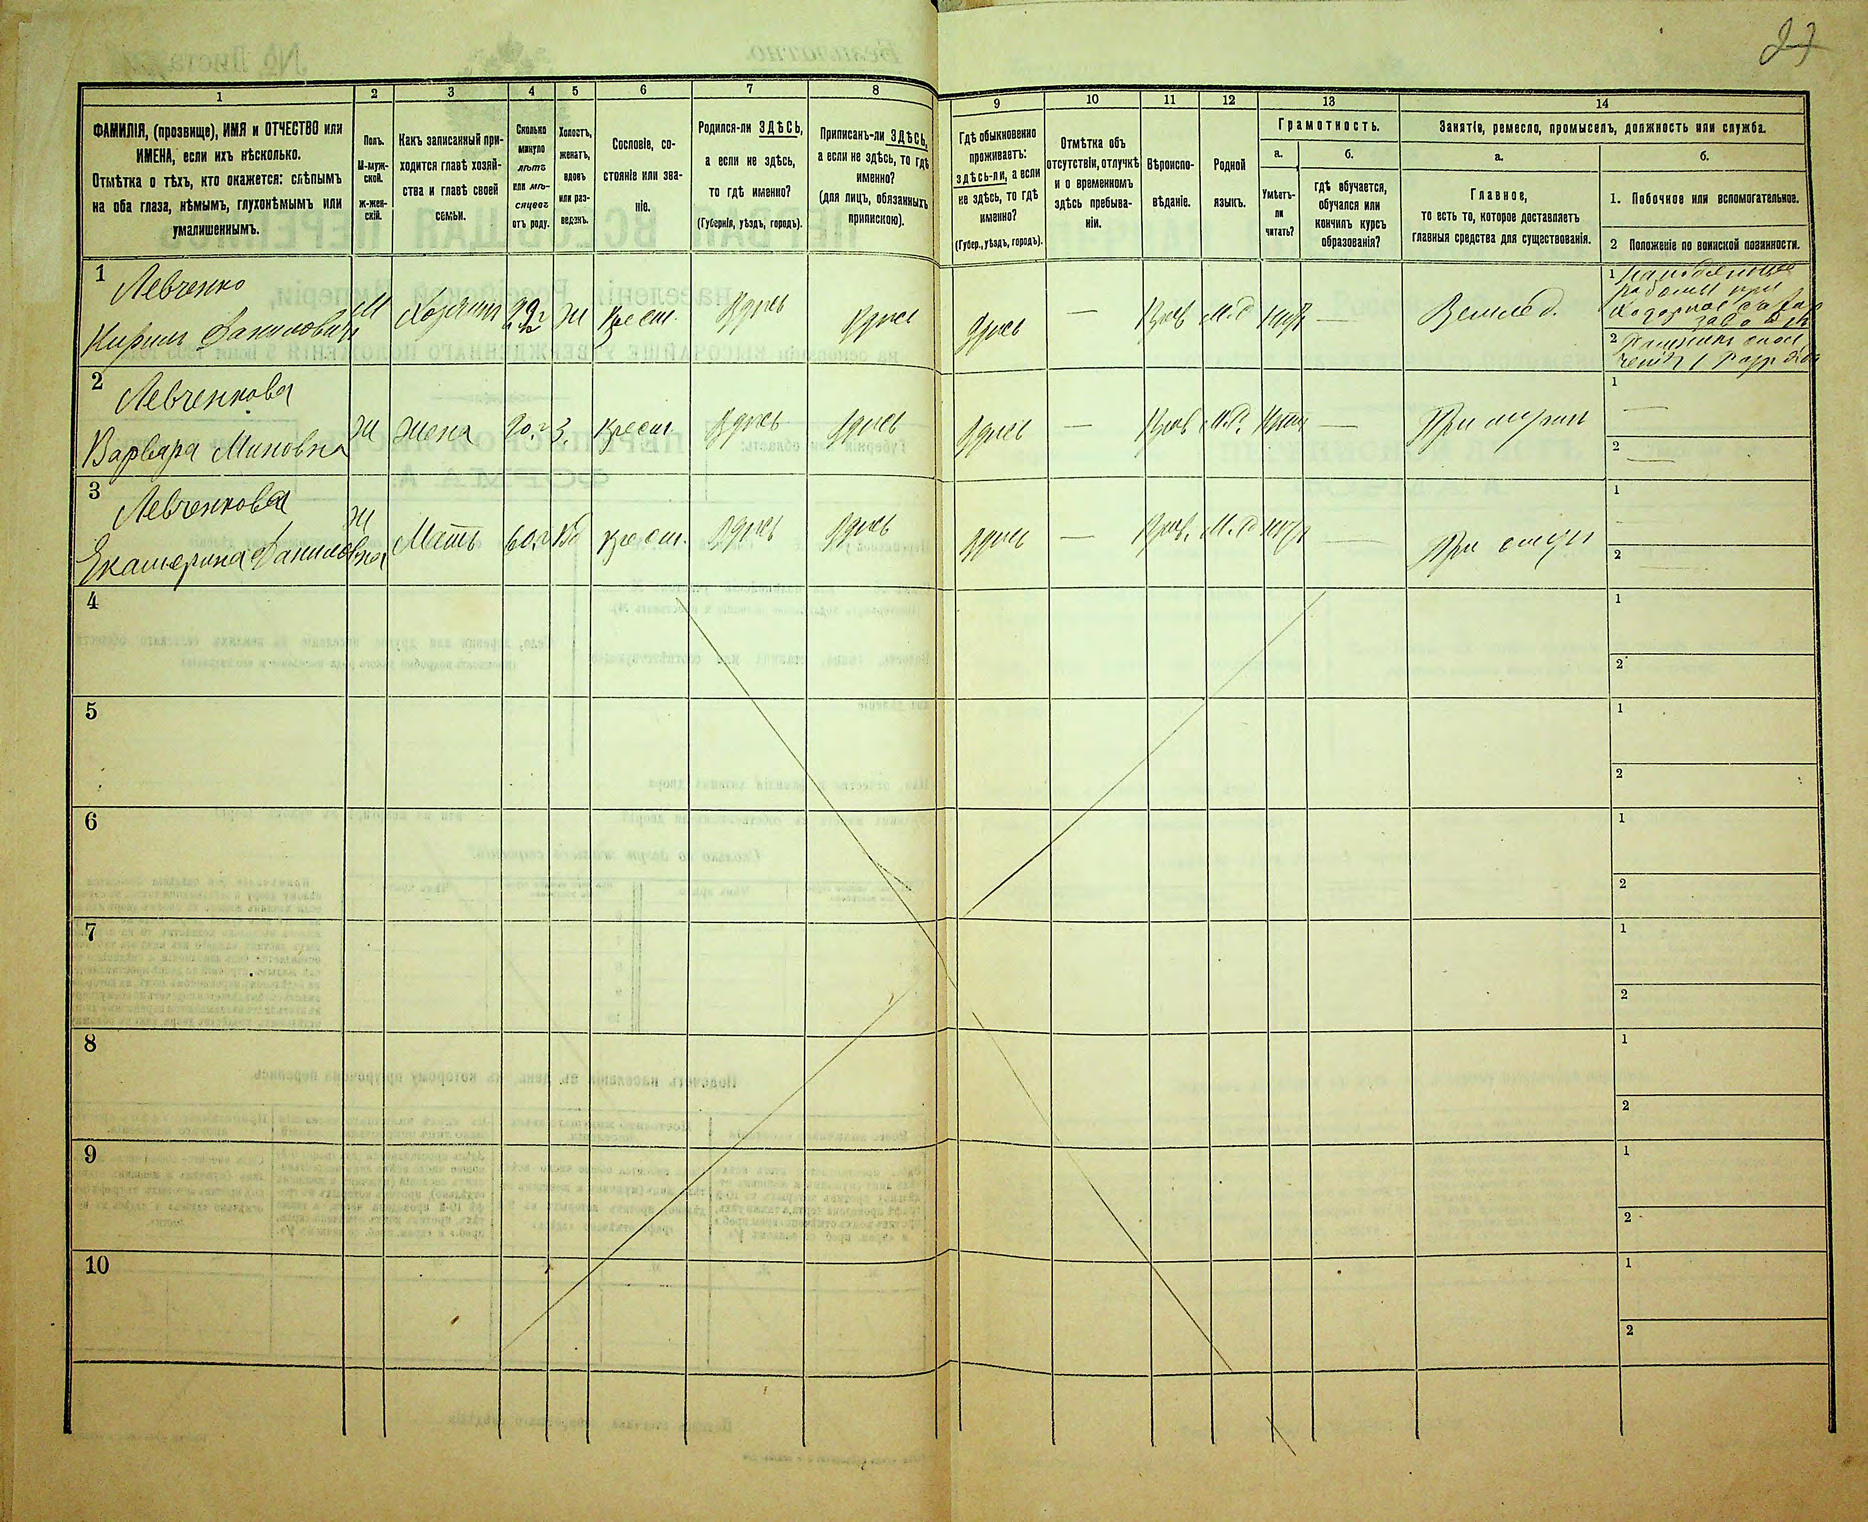 27
1
2
3
4
5
6
7
8
9
10
11
12
13
14
ФАМИЛІЯ, (прозвище), ИМЯ и ОТЧЕСТВО или
ИМЕНА, если ихъ нѣсколько.
Отмѣтка о тѣхъ, кто окажется: слѣпымъ
на оба глаза, нѣмымъ, глухонѣмымъ или
умалишеннымъ.
Полъ.
М-муж-
ской.
ж-жен-
скій.
Какъ записанный при-
ходится главѣ хозяй-
ства и главѣ своей
семьи.
Сколько
минуло
лѣтъ
или мѣ-
сяцевъ
отъ роду.
Холостъ,
женатъ,
вдовъ
или раз-
веденъ.
Сословіе, со-
стояніе или зва-
ніе.
Родился-ли ЗДѢСЬ,
а если не здѣсь,
то гдѣ именно?
(Губернія, уѣздъ, городъ).
Приписанъ-ли ЗДѢСЬ,
а если не здѣсь, то гдѣ
именно?
(для лицъ, обязанныхъ
припискою).
Гдѣ обыкновенно
проживаетъ:
здѣсь-ли, а если
не здѣсь, то гдѣ
именно?
(Губер., уѣздъ, городъ).
Отмѣтка объ
отсутствіи, отлучкѣ
и о временномъ
здѣсь пребыва-
ніи.
Вѣроиспо-
вѣданіе.
Родной
языкъ.
Грамотность.
а.
б.
Умѣетъ-
ли
читать?
гдѣ обучается,
обучался или
кончилъ курсъ
образованія?
Занятіе, ремесло, промыселъ, должность или служба.
а.
б.
Главное,
то есть то, которое доставляетъ
главныя средства для существованія.
1. Побочное или вспомогательное.
2 Положеніе по воинской повинности.
1
Левченко
Кирилъ Даниловичъ
М
Хозяинъ
ж
Крест.
Здѣсь
Здѣсь
Здѣсь
—
Прав
М.д
—
Землед.
1
работы при
завод
2
2
Левченкова
Варвара Миновна
ж
жена
20.г
З.
Крест.
Здѣсь
Здѣсь
Здѣсь
—
Прав
М.д.
—
При мужѣ
1
—
2
—
3
Левченкова
Екатерина Даниловна
ж
Мать
60.г
Вд
Крест.
Здѣсь
Здѣсь
Здѣсь
—
Прав.
М.д
—
При сынѣ
1
—
2
—
4
1
2
5
1
2
6
1
2
7
1
2
8
1
2
9
1
2
10
1
2